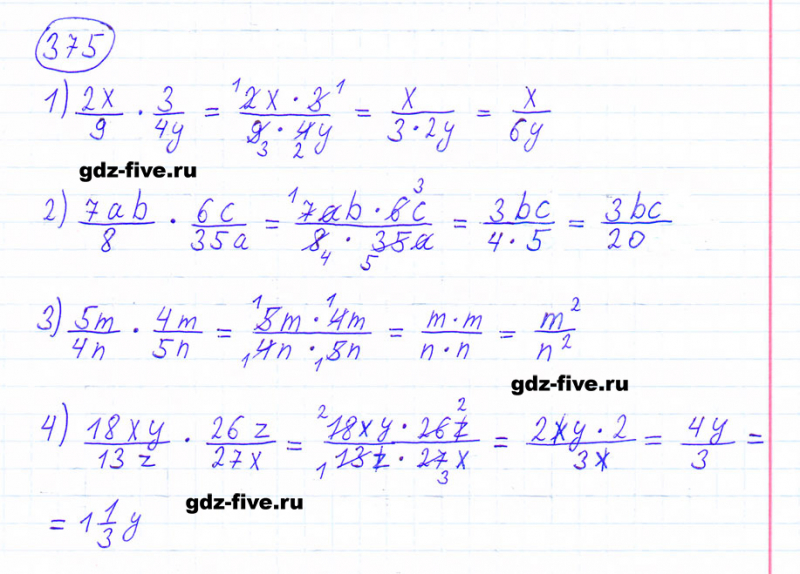 375
1) 2x/9 · 3/4y = ¹2x · 3¹/9₃ · 4₂y = x/3·2y = x/6y
gdz-five.ru
2) 7ab/8 · 6c/35a = ¹7ab · 6³c/8₄ · 35₅a = 3bc/4·5 = 3bc/20
3) 5m/4n · 4m/5n = ¹5m · ¹4m/₁4n · ₁5n = m·m/n·n = m²/n²
gdz-five.ru
4) 18xy/13z · 26z/27x = ²18xy · 26²z/₁13z · 27₃x = 2xy · 2/3x = 4y/3 =
gdz-five.ru
= 1 1/3 y